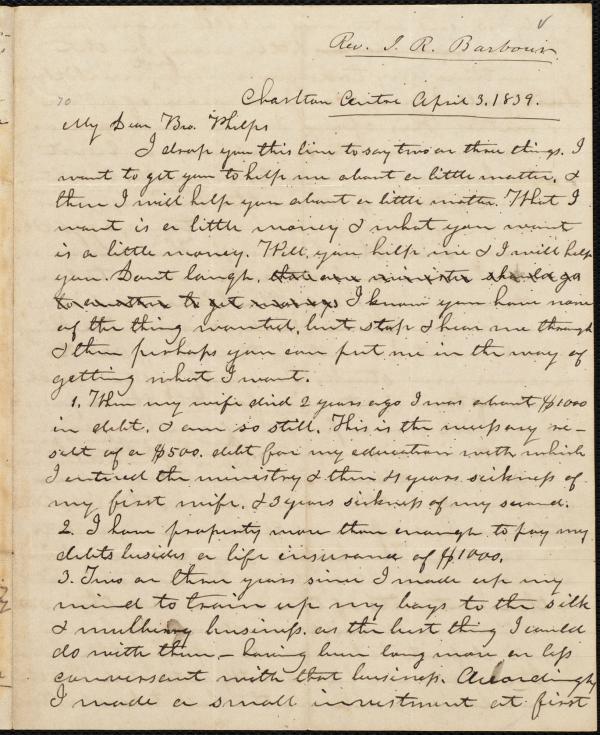 Rev. I. R. Barbour.
70
Charlton Centre April 3. 1839.
My Dear Bro. Phelps
I drop you this line to say two or three things. I
want to get you to help me about a little matter, &
then I will help you about a little matter. What I
want is a little money & what you want
is a little money. Well, you help me & I will help
you. Dont laugh, that one minister should go
to another to get money. I know you have none
of the thing wanted, but stop & hear me through
& then perhaps you can put me in the way of
getting what I want.
1. When my wife died 2 years ago I was about $1000
in debt. & am so still. This is the necessary re-
sult of a $500. debt for my education with which
I entered the ministry & then 4 years sickness of
my first wife, & 3 years sickness of my second.
2. I have property more than enough to pay my
debts besides a life insurance of $1000.
3. Two or three years since I made up my
mind to train up my boys to the silk
& mulberry business. as the best thing I could
do with them, - having been long more or less
conversant with that business. Accordingly
I made a small investment at first